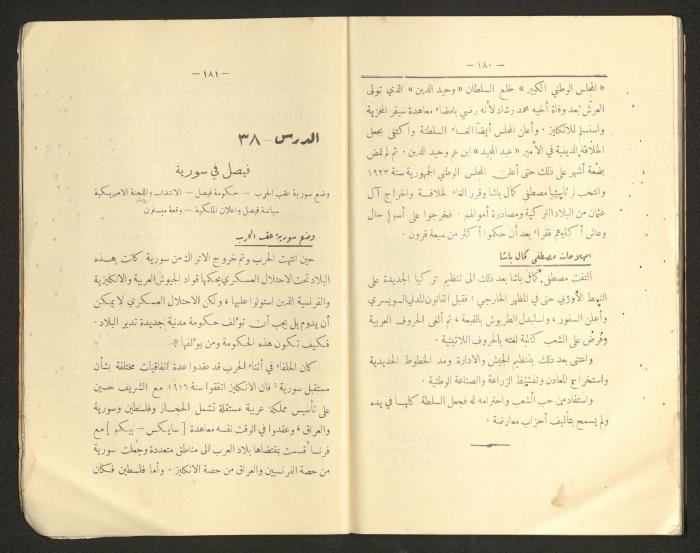 — ١٨٠ —
« المجلس الوطني الكبير » خلع السلطان « وحيد الدين » الذي تولى
العرش بعد وفاة أخيه محمد رشاد لأنه رضي بامضاء معاهدة سيفر المخزية
واستسلم للانكليز . وأعلن المجلس أيضاً الغاء السلطنة واكتفى بجعل
الخلافة الدينية في الأمير « عبد المجيد » ابن عم وحيد الدين . ثم لم تمض
بضعة أشهر على ذلك حتى أعلن المجلس الوطني الجمهورية سنة ١٩٢٣
وانتخب لرئاستها مصطفى كمال باشا وقرر الغاء الخلافة واخراج آل
عثمان من البلاد التركية ومصادرة أموالهم . فخرجوا على أسوإ حال
وعاش أكثرهم فقراء بعد أن حكموا أكثر من سبعة قرون .
اصلاحات مصطفى كمال باشا
التفت مصطفى كمال باشا بعد ذلك الى تنظيم تركيا الجديدة على
النمط الأوربي حتى في المظهر الخارجي : فقبل القانون المدني السويسري
وأعلن السفور ، واستبدل الطربوش بالقبعة ، ثم ألغى الحروف العربية
وفرض على الشعب كتابة لغته بالحروف اللاتينية .
واعتنى بعد ذلك بتنظيم الجيش والادارة ومد الخطوط الحديدية
واستخراج المعادن وتنشيط الزراعة والصناعة الوطنية .
واستفاد من حب الشعب واحترامه له فجعل السلطة كلها في يده
ولم يسمح بتأليف أحزاب معارضة .
— ١٨١ —
الدرس – ٣٨
فيصل في سورية
وضع سورية عقب الحرب – حكومة فيصل – الانتداب واللجنة الامريكية
سياسة فيصل واعلان الملكية – وقعة ميسلون
وضع سورية عقب الحرب
حين انتهت الحرب وتم خروج الاتراك من سورية كانت هذه
البلاد تحت الاحتلال العسكري يحكمها قواد الجيوش العربية والانكليزية
والفرنسية الذين استولوا عليها ، ولكن الاحتلال العسكري لا يمكن
أن يدوم بل يجب أن تؤلف حكومة مدنية جديدة تدير البلاد .
فكيف تكون هذه الحكومة ومن يؤلفها ؟
كان الحلفاء في أثناء الحرب قد عقدوا عدة اتفاقيات مختلفة بشأن
مستقبل سورية : فان الانكليز اتفقوا سنة ١٩١٦ مع الشريف حسين
على تأسيس مملكة عربية مستقلة تشمل الحجاز وفلسطين وسورية
والعراق ، وعقدوا في الوقت نفسه معاهدة [ سايكس – بيكو ] مع
فرنسا قسمت بمقتضاها بلاد العرب الى مناطق متعددة وجعلت سورية
من حصة الفرنسيين والعراق من حصة الانكليز . وأما فلسطين فكان